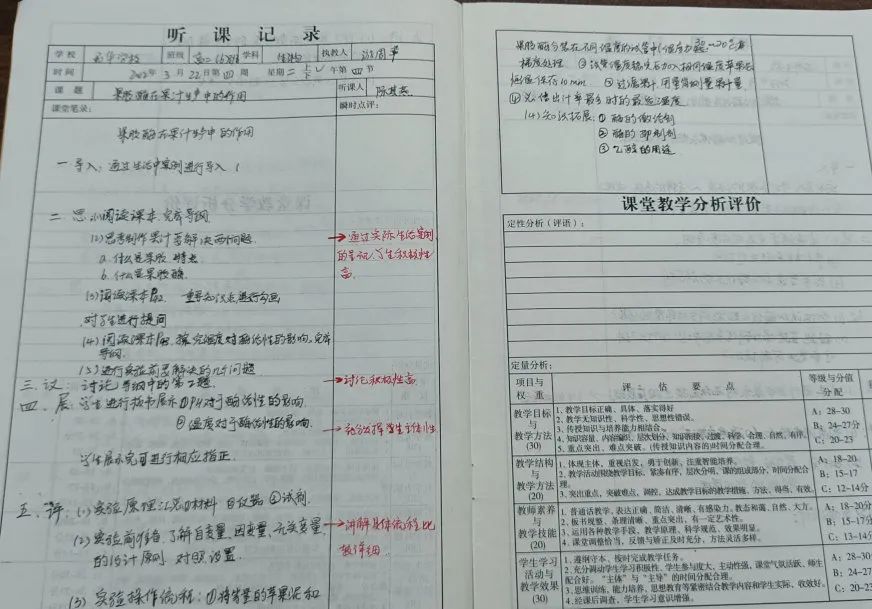 听课记录
学校 班级 高二(6)班 学科 生物 执教人
时间 2022年3月22日第四周 星期二 上 下 午第四节
课题 果胶酶在果汁生产中的作用 听课人 陈
课堂笔录: 瞬时点评:
果胶酶在果汁生产中的作用
一 导入: 通过生活中案例进行导入
二 思 (1)阅读课本 完成导纲
(2)思考制作果汁要解决两问题
a. 什么是果胶 特点
b. 什么是果胶酶
(3)阅读课本 重要知识点进行勾画
对学生进行提问
(4)阅读课本 探究温度对酶活性的影响、完成
导纲
(5)进行实验前要解决的几个问题
→通过实际生活案例
的 学生积极性
高
三. 议: 讨论导纲中的第2题
→讨论积极性高
四. 展: 学生进行板书展示①PH对于酶活性的影响
②温度对于酶活性的影响
→充分发挥学生主体性
学生展示完可进行相应指正
五. 评: (1)实验原理汇总①材料 ②仪器 ③试剂
(2)实验前准备,了解自变量,因变量,无关变量,
的设计原则,对照,设置
→讲解具体流程比
较详细
(3)实验操作流程: ①将等量的苹果泥和
果胶酶分装在不同温度的试管中(温度为 梯度处理 ②试管温度稳定后加入相同温度苹果泥
恒温保存10min ③过滤果汁 用量筒测量果汁量
④得出出汁率最多时的最适温度
(4)知识拓展: ①酶的激活剂
②酶的抑制剂
③乙醇的用途
课堂教学分析评价
定性分析(评语):
定量分析:
项目与权重 评估要点 等级与分值分配
教学目标与教学方法(30)
1、教学目标正确、具体、落实得好
2、教学无知识性、科学性、思想性错误。
3、传授知识与培养能力相结合。
4、知识容量、内容编织、层次划分、知识衔接、过渡、科学、合理、自然、有序。
5、重点突出,难点突破。(传授知识内容的)时间分配合理。
A: 28-30
B: 24-27分
C: 20-23
教学结构与教学方法(20)
1、体现主体,重视启发,勇于创新,注重智能培养。
2、教学活动围绕教学目标,紧凑有序,层次分明,课的组成部分,时间分配合理。
3、突出重点,突破难点,调控、达成教学目标的教学措施、方法、得当、有效。
A: 18-20
B: 15-17
C: 12-14分
教师素养与教学技能(20)
1、普通话教学,表达正确、简洁、清晰、有感染力。教态和蔼、自然、大方。
2、板书规整、条理清晰、重点突出、有一定艺术性。
3、运用各种教学手段、教学原理、科学规范、效果明显。
4、课堂调整恰当、反馈与矫正及时充分、方法灵活多样。
A: 18-20分
B: 15-17分
C: 13-14分
学生学习活动与教学效果(30)
1、遵纲守本、按时完成教学任务。
2、充分调动学生学习积极性,学生参与度大、主动性强,课堂气氛活跃、师生
配合好。“主体”与“主导”的时间分配合理。
3、思维训练、能力培养、思想教育等紧密结合教学内容和学生实际、收效好。
4、经课后调查、学生学习意识增强。
A: 28-30
B: 24-27
C: 20-23